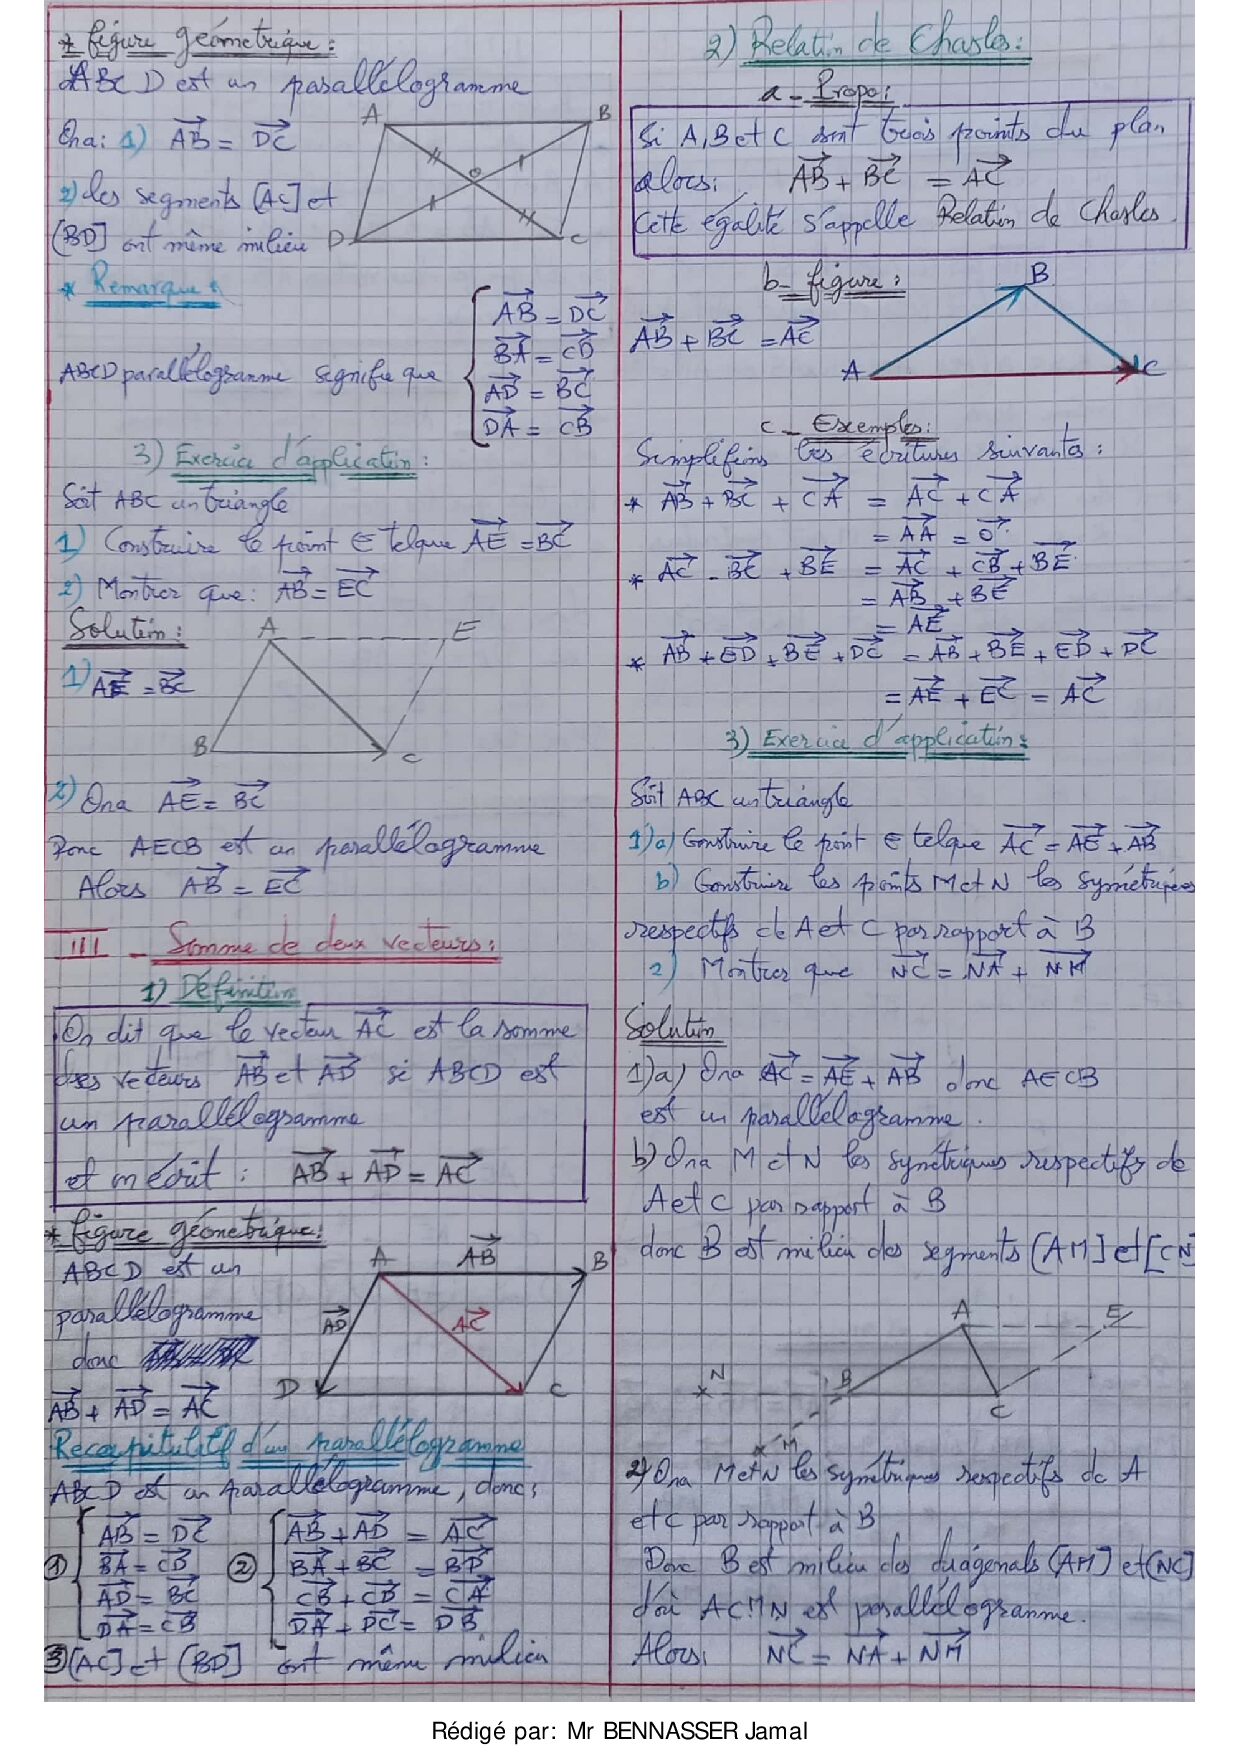 * figure géometrique :
ABCD est un parallélogramme
Ona : 1) AB = DC
2) les segments [AC] et
[BD] ont même milieu
A B
O
D C
* Remarque :
ABCD parallélogramme signifie que
AB = DC
BA = CD
AD = BC
DA = CB
3) Exercice d'application :
Soit ABC un triangle
1) Construire le point E telque AE = BC
2) Montrer que : AB = EC
Solution :
1) AE = BC
A E
B C
2) Ona AE = BC
Donc AECB est un parallélogramme
Alors AB = EC
III - Somme de deux vecteurs :
1) Définition
On dit que le vecteur AC est la somme
des vecteurs AB et AD si ABCD est
un parallélogramme
et on écrit : AB + AD = AC
* figure géometrique :
ABCD est un
parallélogramme
donc
AB + AD = AC
A AB B
AD AC
D C
Recapitulatif d'un parallélogramme
ABCD est un parallélogramme, donc :
① AB = DC
BA = CD
AD = BC
DA = CB
② AB + AD = AC
BA + BC = BD
CB + CD = CA
DA + DC = DB
③ [AC] et [BD] ont même milieu
2) Relation de Chasles :
a - Propo :
Si A, B et C sont trois points du plan
alors : AB + BC = AC
Cette égalité s'appelle Relation de Chasles.
b - figure :
AB + BC = AC
B
A C
c - Exemples :
Simplifions les écritures suivantes :
* AB + BC + CA = AC + CA
= AA = 0
* AC - BC + BE = AC + CB + BE
= AB + BE
= AE
* AB + ED + BE + DC = AB + BE + ED + DC
= AE + EC = AC
3) Exercice d'application :
Soit ABC un triangle
1) a) Construire le point E telque AC = AE + AB
b) Construire les points M et N les symétriques
respectifs de A et C par rapport à B
2) Montrer que NC = NA + NM
Solution
1) a) Ona AC = AE + AB donc AECB
est un parallélogramme.
b) Ona M et N les symétriques respectifs de
A et C par rapport à B
donc B est milieu des segments [AM] et [CN]
A E
N B
C
M
2) Ona M et N les symétriques respectifs de A
et C par rapport à B
Donc B est milieu des diagonals [AM] et [NC]
d'où ACMN est parallélogramme.
Alors : NC = NA + NM
Rédigé par: Mr BENNASSER Jamal